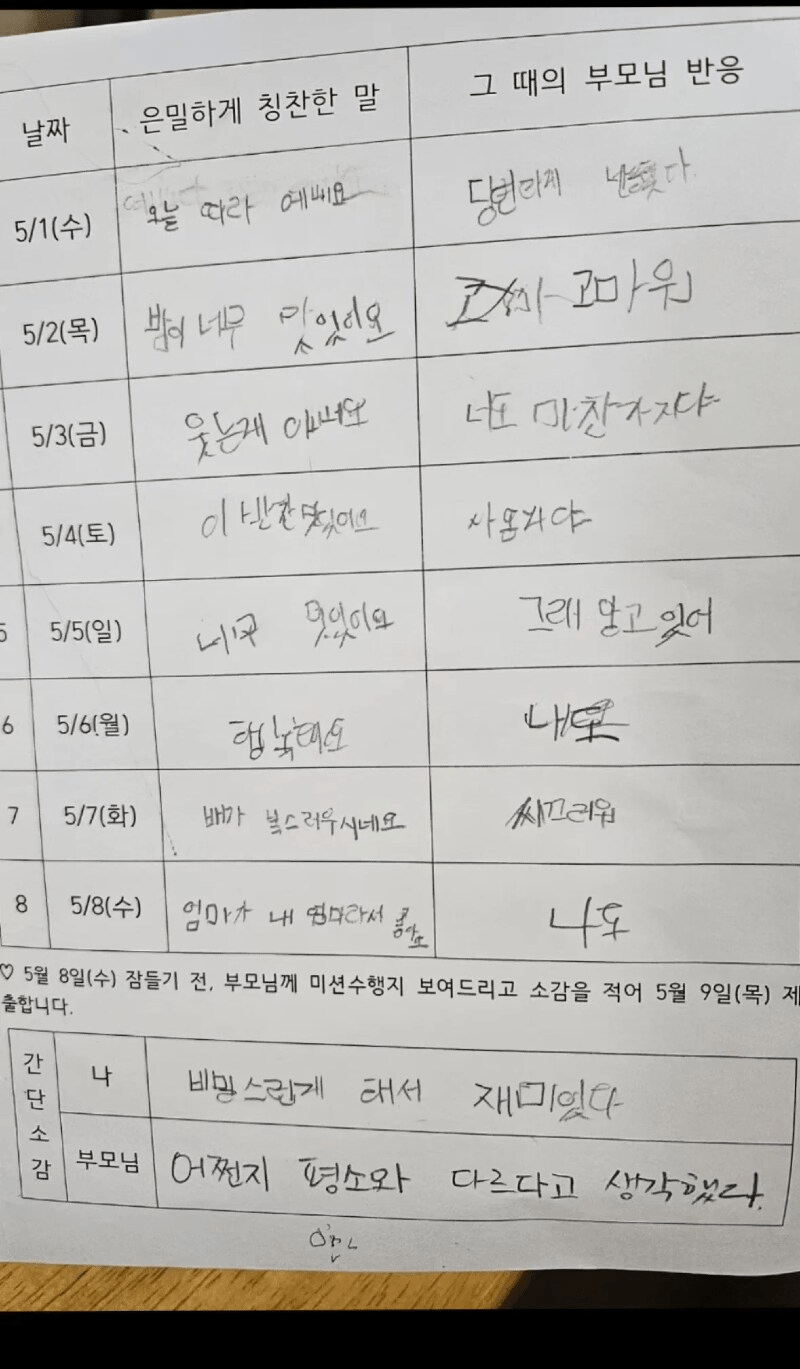 날짜 은밀하게 칭찬한 말 그 때의 부모님 반응
5/1(수) 오늘 따라 예뻐요
5/2(목) 밥이 너무 맛있이요 고마워
5/3(금) 너도 마찬가지다
5/4(토) 이 반찬 맛있어요
5/5(일) 너무 멋있이요 그래 알고 있어
6 5/6(월) 행복해요 나도
7 5/7(화) 배가 복스러우시네요 씨끄러워
8 5/8(수) 엄마가 내 엄마라서 좋아요 나도
♡ 5월 8일(수) 잠들기 전, 부모님께 미션수행지 보여드리고 소감을 적어 5월 9일(목) 제
출합니다.
간단소감
나 비밀스럽게 해서 재미있다
부모님 어쩐지 평소와 다르다고 생각했다.